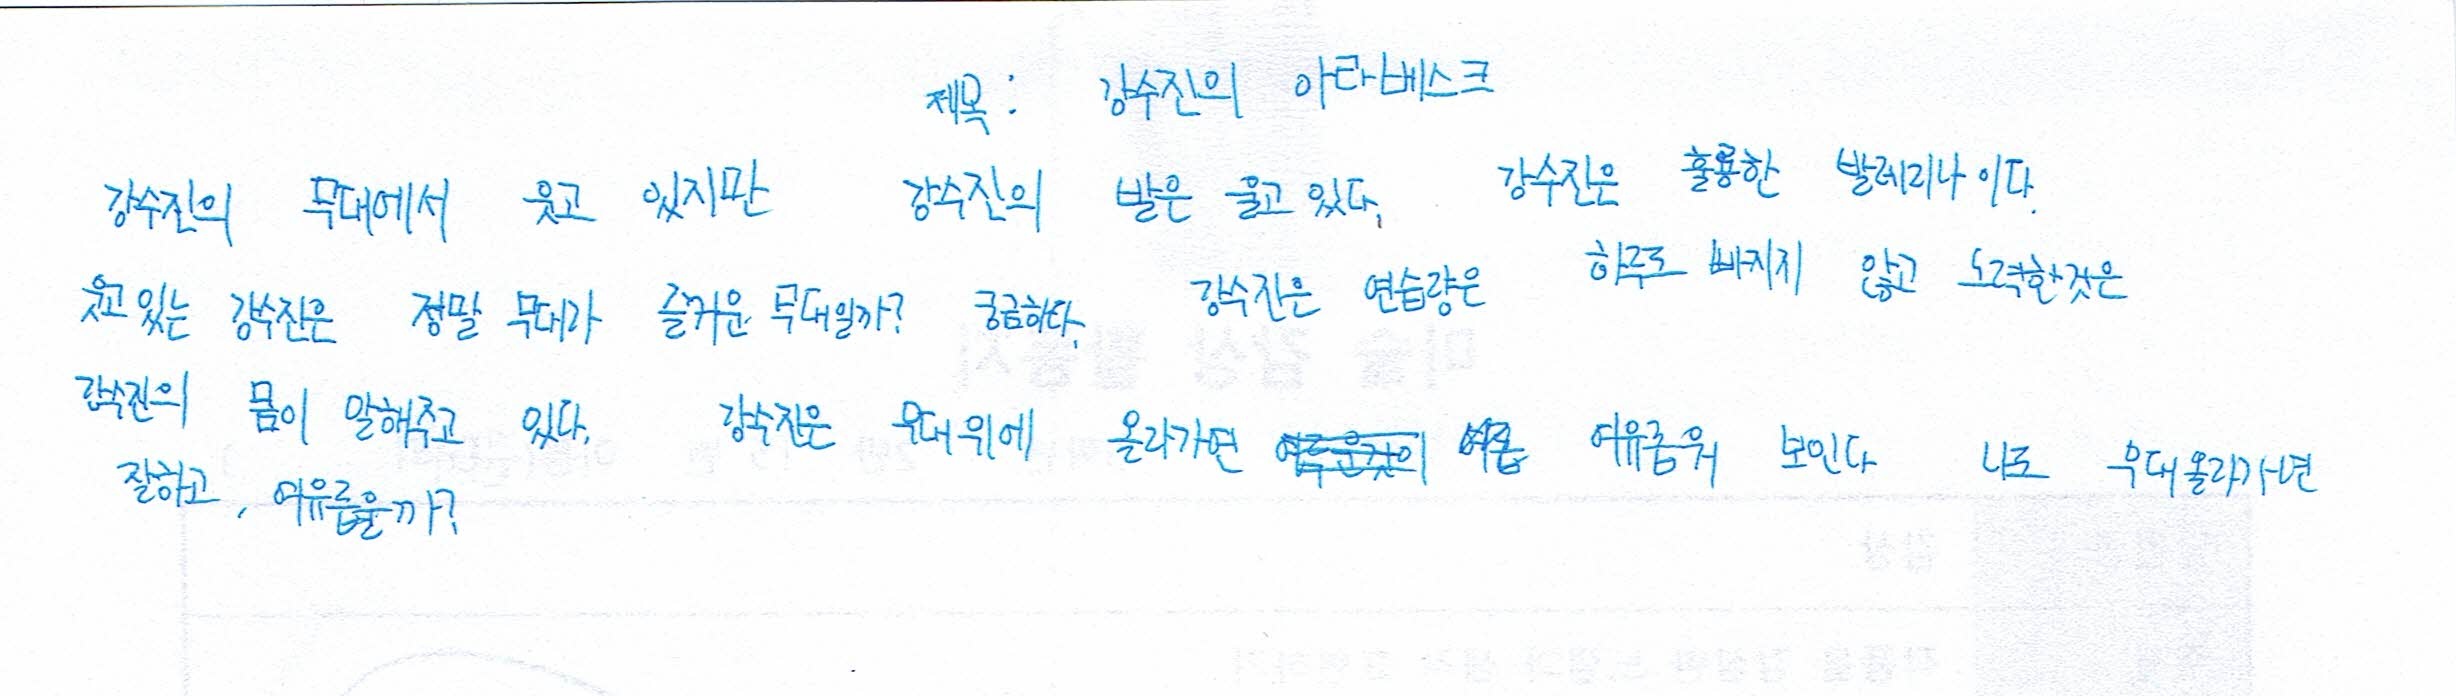 제목: 강수진의 아라베스크
강수진의 무대에서 웃고 있지만 강수진의 발은 울고 있다. 강수진은 훌룡한 발레리나이다.
웃고 있는 강수진은 정말 무대가 즐거운 무대일까? 궁금하다. 강수진은 연습량은 하루도 빠지지 않고 노력한것은
강수진의 몸이 말해주고 있다. 강수진은 무대위에 올라가면 여유롭워 보인다 나도 무대올라가면
잘하고, 여유로울까?